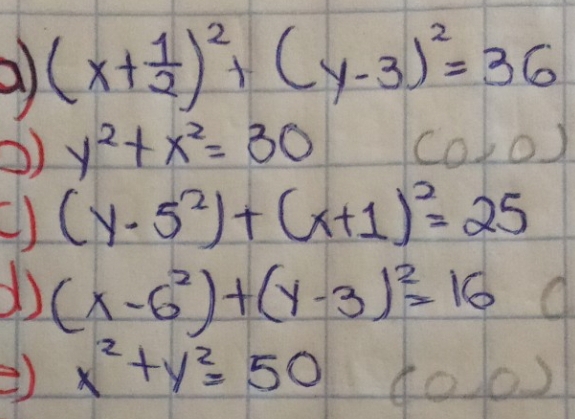 a) (x+1/2)²+ (y-3)²= 36
b) y²+x²= 30 (0,0)
c) (y-5²)+(x+1)²= 25
d) (x-6²)+(y-3)²= 16 (
e) x²+y²= 50 (0,0)